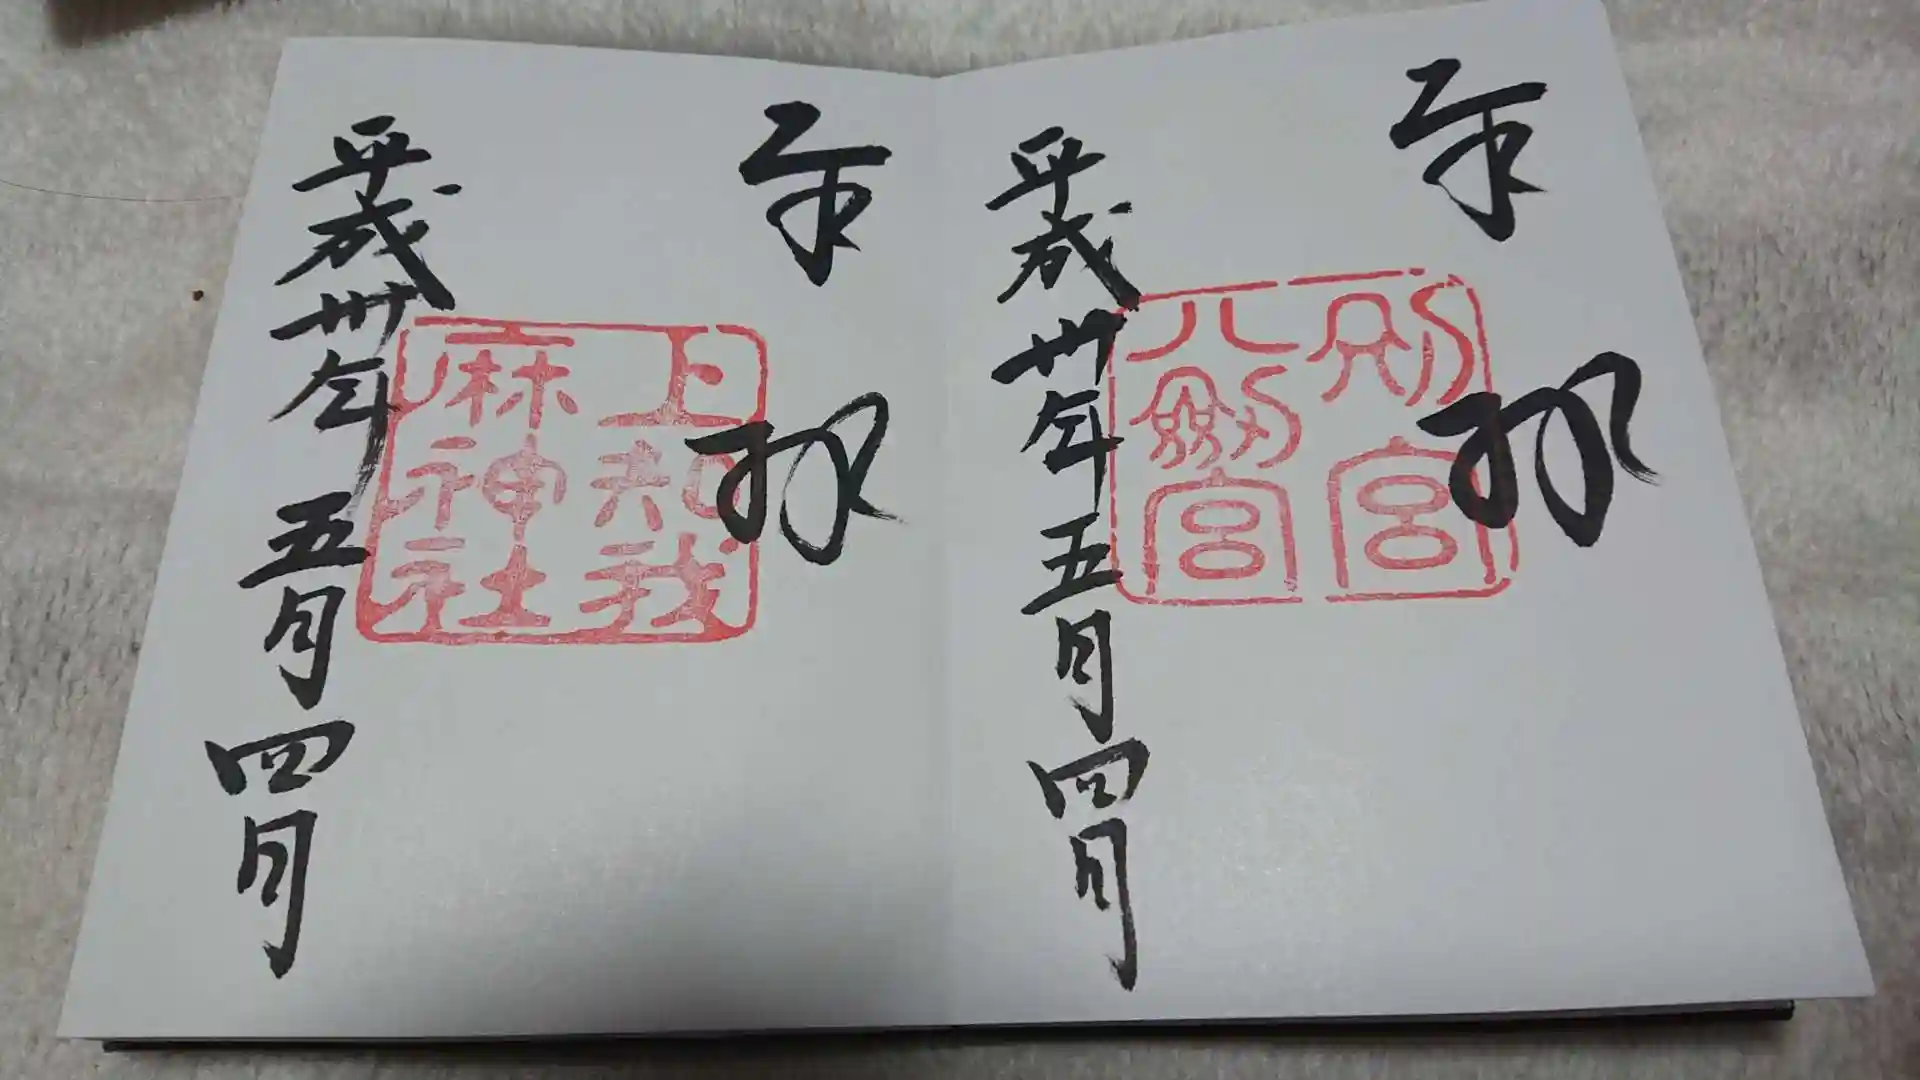 奉拝
別宮
八剣宮
平成卅年五月四日
奉拝
上知我
麻神社
平成卅年五月四日